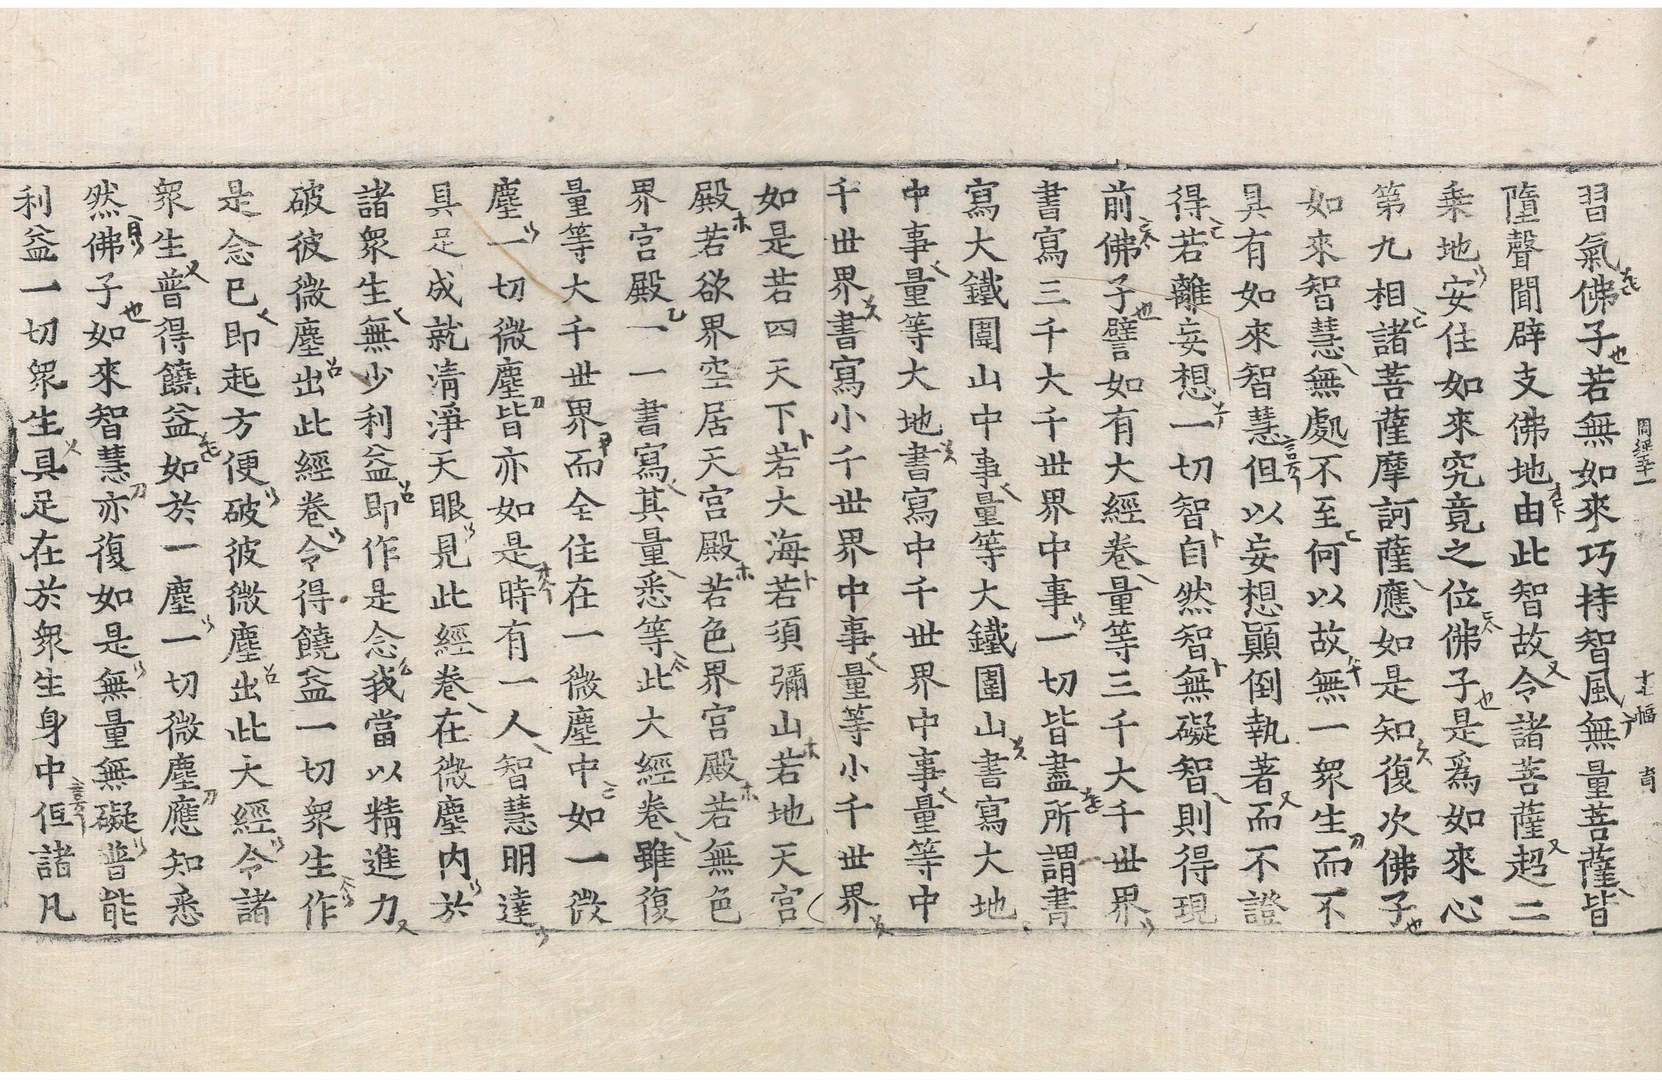 習氣佛子若無如來巧持智風無量菩薩皆
墮聲聞辟支佛地由此智故令諸菩薩超二
乘地安住如來究竟之位佛子是爲如來心
第九相諸菩薩摩訶薩應如是知復次佛子
如來智慧無處不至何以故無一衆生而不
具有如來智慧但以妄想顚倒執著而不證
得若離妄想一切智自然智無礙智則得現
前佛子譬如有大經卷量等三千大千世界
書寫三千大千世界中事一切皆盡所謂書
寫大鐵圍山中事量等大鐵圍山書寫大地
中事量等大地書寫中千世界中事量等中
千世界書寫小千世界中事量等小千世界
如是若四天下若大海若須彌山若地天宮
殿若欲界空居天宮殿若色界宮殿若無色
界宮殿一一書寫其量悉等此大經卷雖復
量等大千世界而全住在一微塵中如一微
塵一切微塵皆亦如是時有一人智慧明達
具足成就清淨天眼見此經卷在微塵內於
諸衆生無少利益即作是念我當以精進力
破彼微塵出此經卷令得饒益一切衆生作
是念已即起方便破彼微塵出此大經令諸
衆生普得饒益如於一塵一切微塵應知悉
然佛子如來智慧亦復如是無量無礙普能
利益一切衆生具足在於衆生身中但諸凡